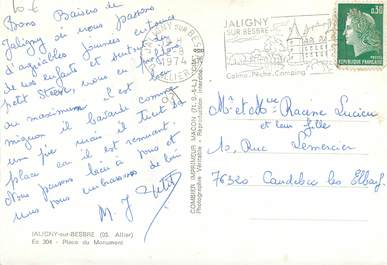 Bons Baisers de
Jaligny où nous passons
d'agréables journées entourés
de nos enfants et surtout du
petit Steeve, nous en profitons
au maximum il est
mignon il bavarde comme
une pie mais il tient sa
place car il est remuant.
Nous pensons bien à vous et
vous embrassons de loin
M. J Petit
JALIGNY-sur-BESBRE (03. Allier)
Ec 304 - Place du Monument
COMBIER IMPRIMEUR MACON (71. S.-&-L.) "CIM"
Photographie Véritable - Reproduction interdite
JALIGNY SUR BESBRE
1974
ALLIER
JALIGNY
SUR-BESBRE
Calme. Pêche. Camping
0,30
REPUBLIQUE FRANÇAISE
Mr et Mme Racine Lucien
et leur fille
10, Rue Lemercier
76320 Caudebec les Elbeuf